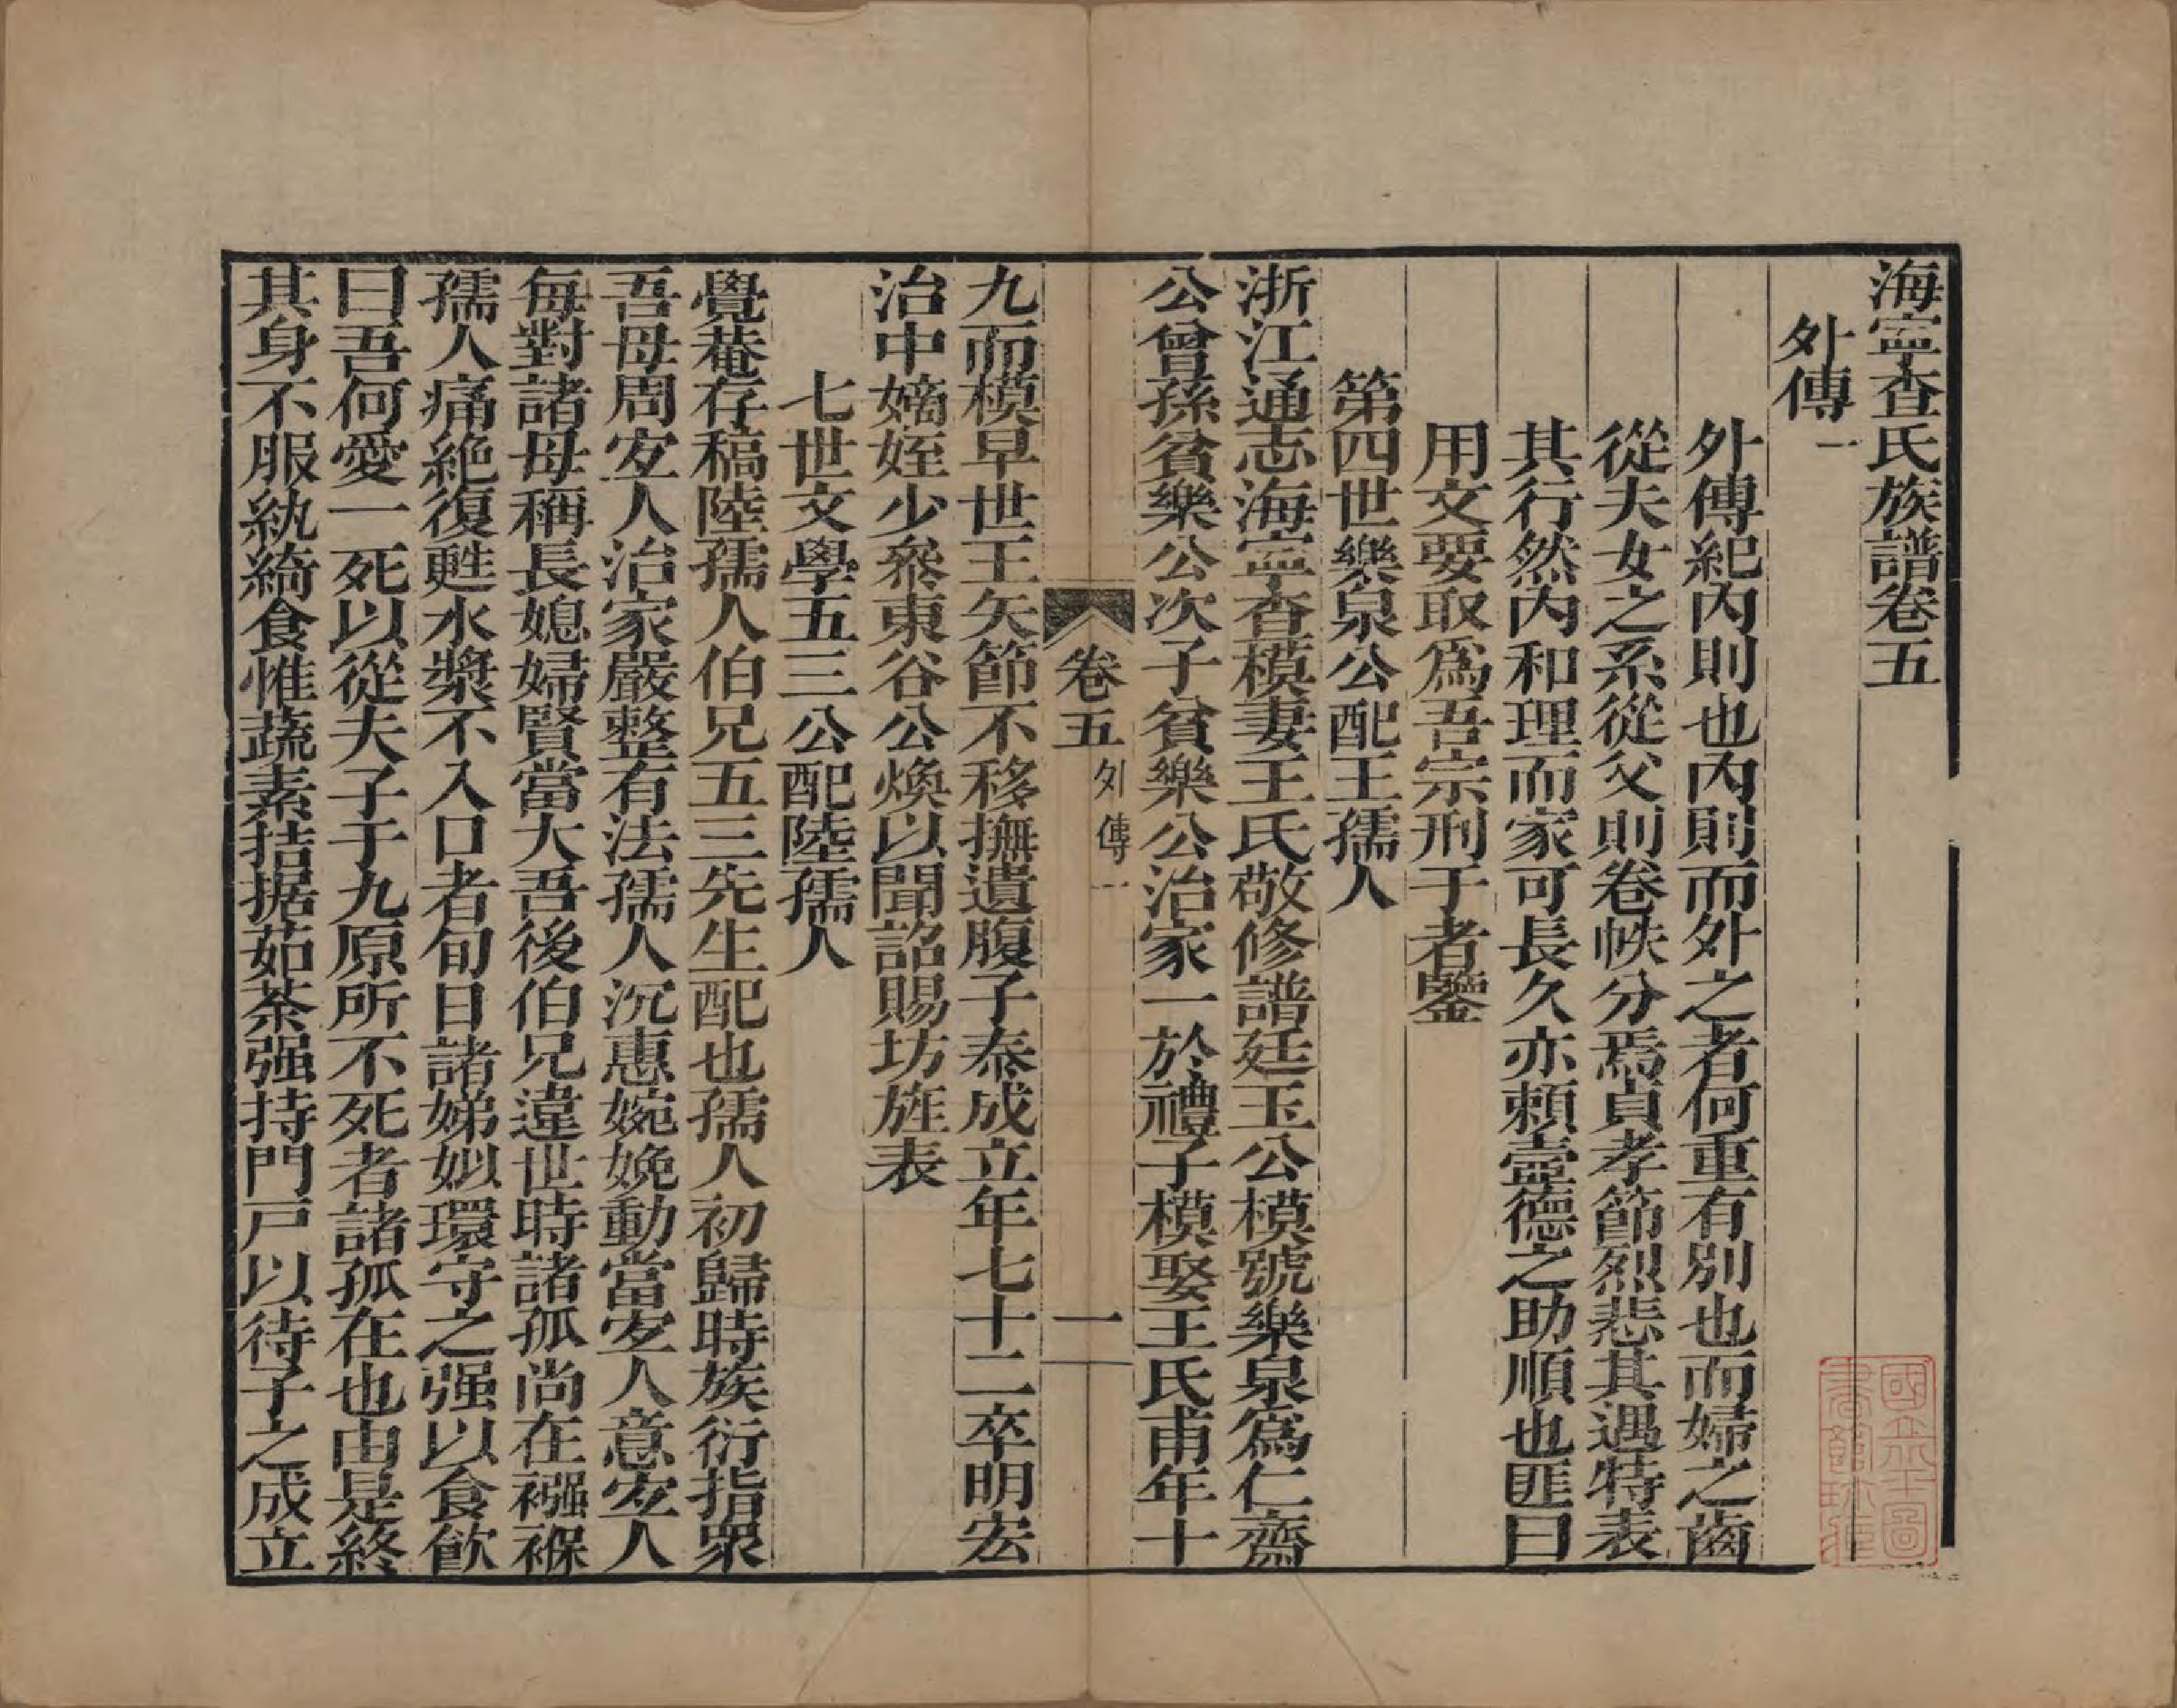 海寧查氏族譜卷五
外傳一
外傳紀內則也內則而外之者何重有別也而婦之齒
從夫女之系從父則卷帙分焉貞孝節烈悲其遇特表
其行然內和理而家可長久亦賴壼德之助順也匪曰
用文要取爲吾宗刑于者鑒
第四世樂泉公配王孺人
浙江通志海寧查模妻王氏敬修譜廷玉公模號樂泉爲仁齋
公曾孫貧樂公次子貧樂公治家一於禮子模娶王氏甫年十
卷五 外傳一 一
九而模早世王矢節不移撫遺腹子泰成立年七十二卒明宏
治中嫡姪少叅東谷公煥以聞詔賜坊旌表
七世文學五三公配陸孺人
覺菴存稿陸孺人伯兄五三先生配也孺人初歸時族衍指衆
吾母周安人治家嚴整有法孺人沉惠婉娩動當安人意安人
每對諸母稱長媳婦賢當大吾後伯兄違世時諸孤尚在襁褓
孺人痛絶復甦水漿不入口者旬日諸娣姒環守之强以食飲
曰吾何愛一死以從夫子于九原所不死者諸孤在也由是終
其身不服紈綺食惟蔬素拮据茹荼强持門戸以待子之成立